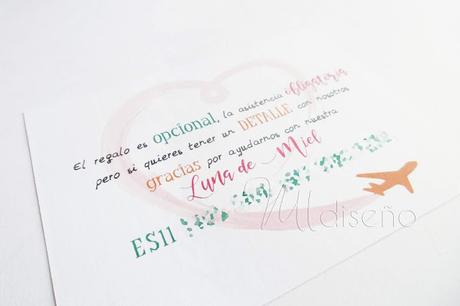 El regalo es opcional, la asistencia obligatoria
pero si quieres tener un DETALLE con nosotros
gracias por ayudarnos con nuestra
Luna de Miel
ES11
Ml diseño